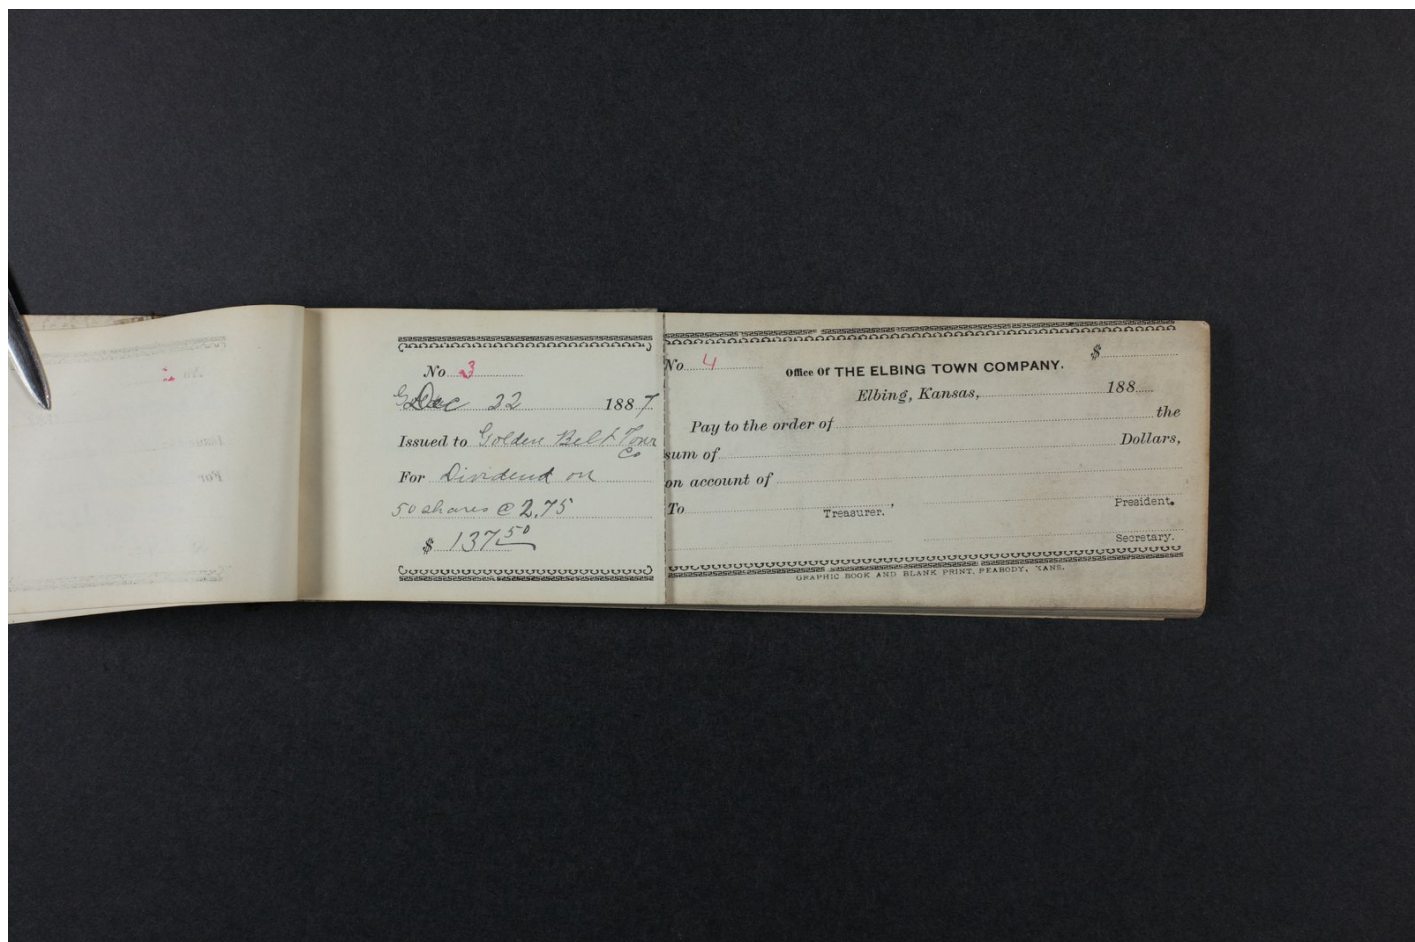 No 3
Dec 22 1887
Issued to Golden Belt Town
Co
For Dividend on
50 shares @ 2.75
$ 137 50
No 4
$
Office Of THE ELBING TOWN COMPANY.
Elbing, Kansas, 188
Pay to the order of the
sum of Dollars,
on account of
To Treasurer. President.
Secretary.
GRAPHIC BOOK AND BLANK PRINT, PEABODY, KANS.